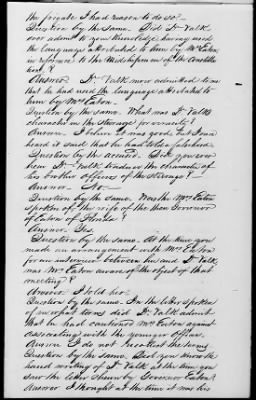 the private I had reason to do so?
Question by the same. Did Dr. Valk
ever admit to your knowledge having used
the language attributed to him by Mr. Eaton
in reference to the Midshipmen of the
boat?
Answer. Dr. Valk never admitted to me
that he had used the language attributed to
him by Mr. Eaton.
Question by the same. What was Dr. Valk's
character in the steerage for veracity?
Answer. I believe it was good, but I once
heard it said that he had told a falsehood.
Question by the accused. Did you ever
hear Dr. Valk traduce the character of
his brother officers of the steerage?
Answer. No.
Question by the same. Was the Mrs. Eaton
spoken of the wife of the then Governor
of Eaton of Florida?
Answer. Yes.
Question by the same. At the time you
made an arrangement with Mr. Eaton
for an interview between him and Dr. Valk
was Mr. Eaton aware of the object of that
meeting?
Answer. I told him.
Question by the same. In the letter spoken
of in what terms did Dr. Valk admit
that he had cautioned Mrs. Eaton against
associating with the younger officers.
Answer. I do not recollect the terms.
Question by the same. Did you know the
hand writing of Dr. Valk at the time you
saw the letter shewn by Governor Eaton?
Answer. I thought at the time it was his